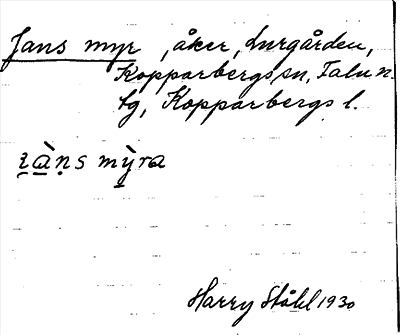 Jans myr, åker, Lurgården,
Kopparbergs sn, Falu n.
tg, Kopparbergs l.
Harry Ståhl 1930